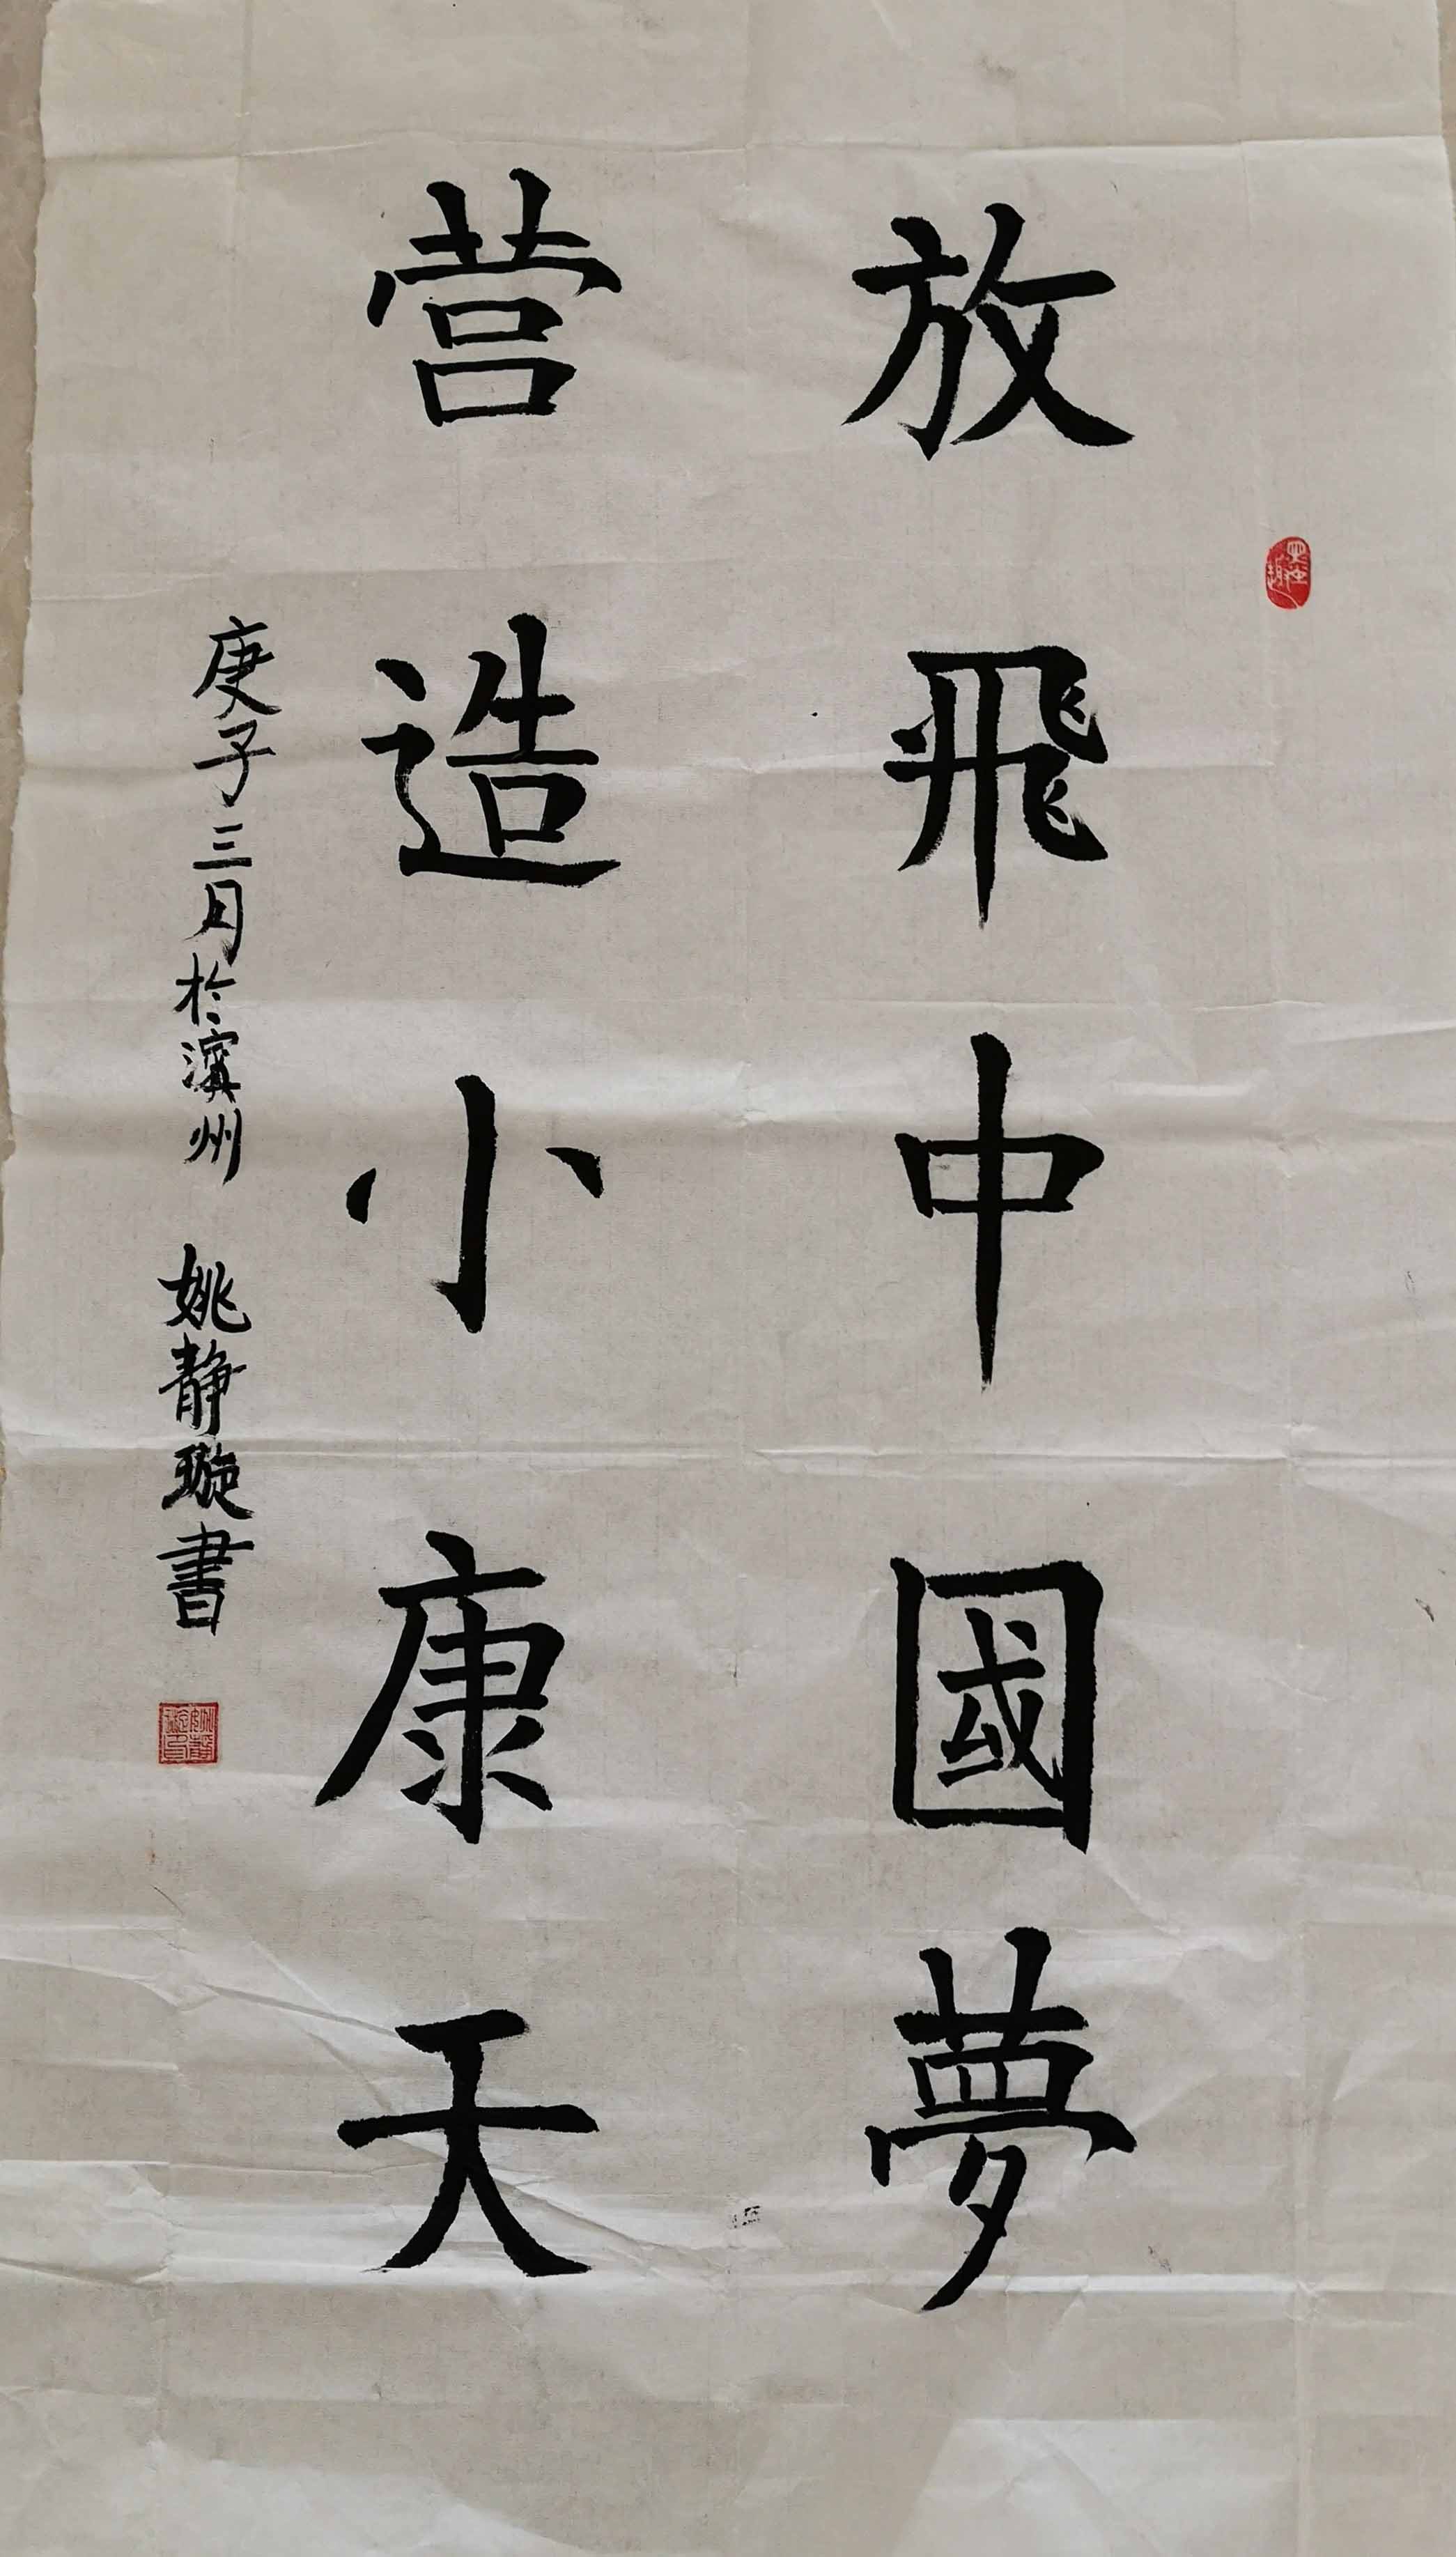 放飛中國夢
营造小康天
庚子三月於濱州 姚静璇書